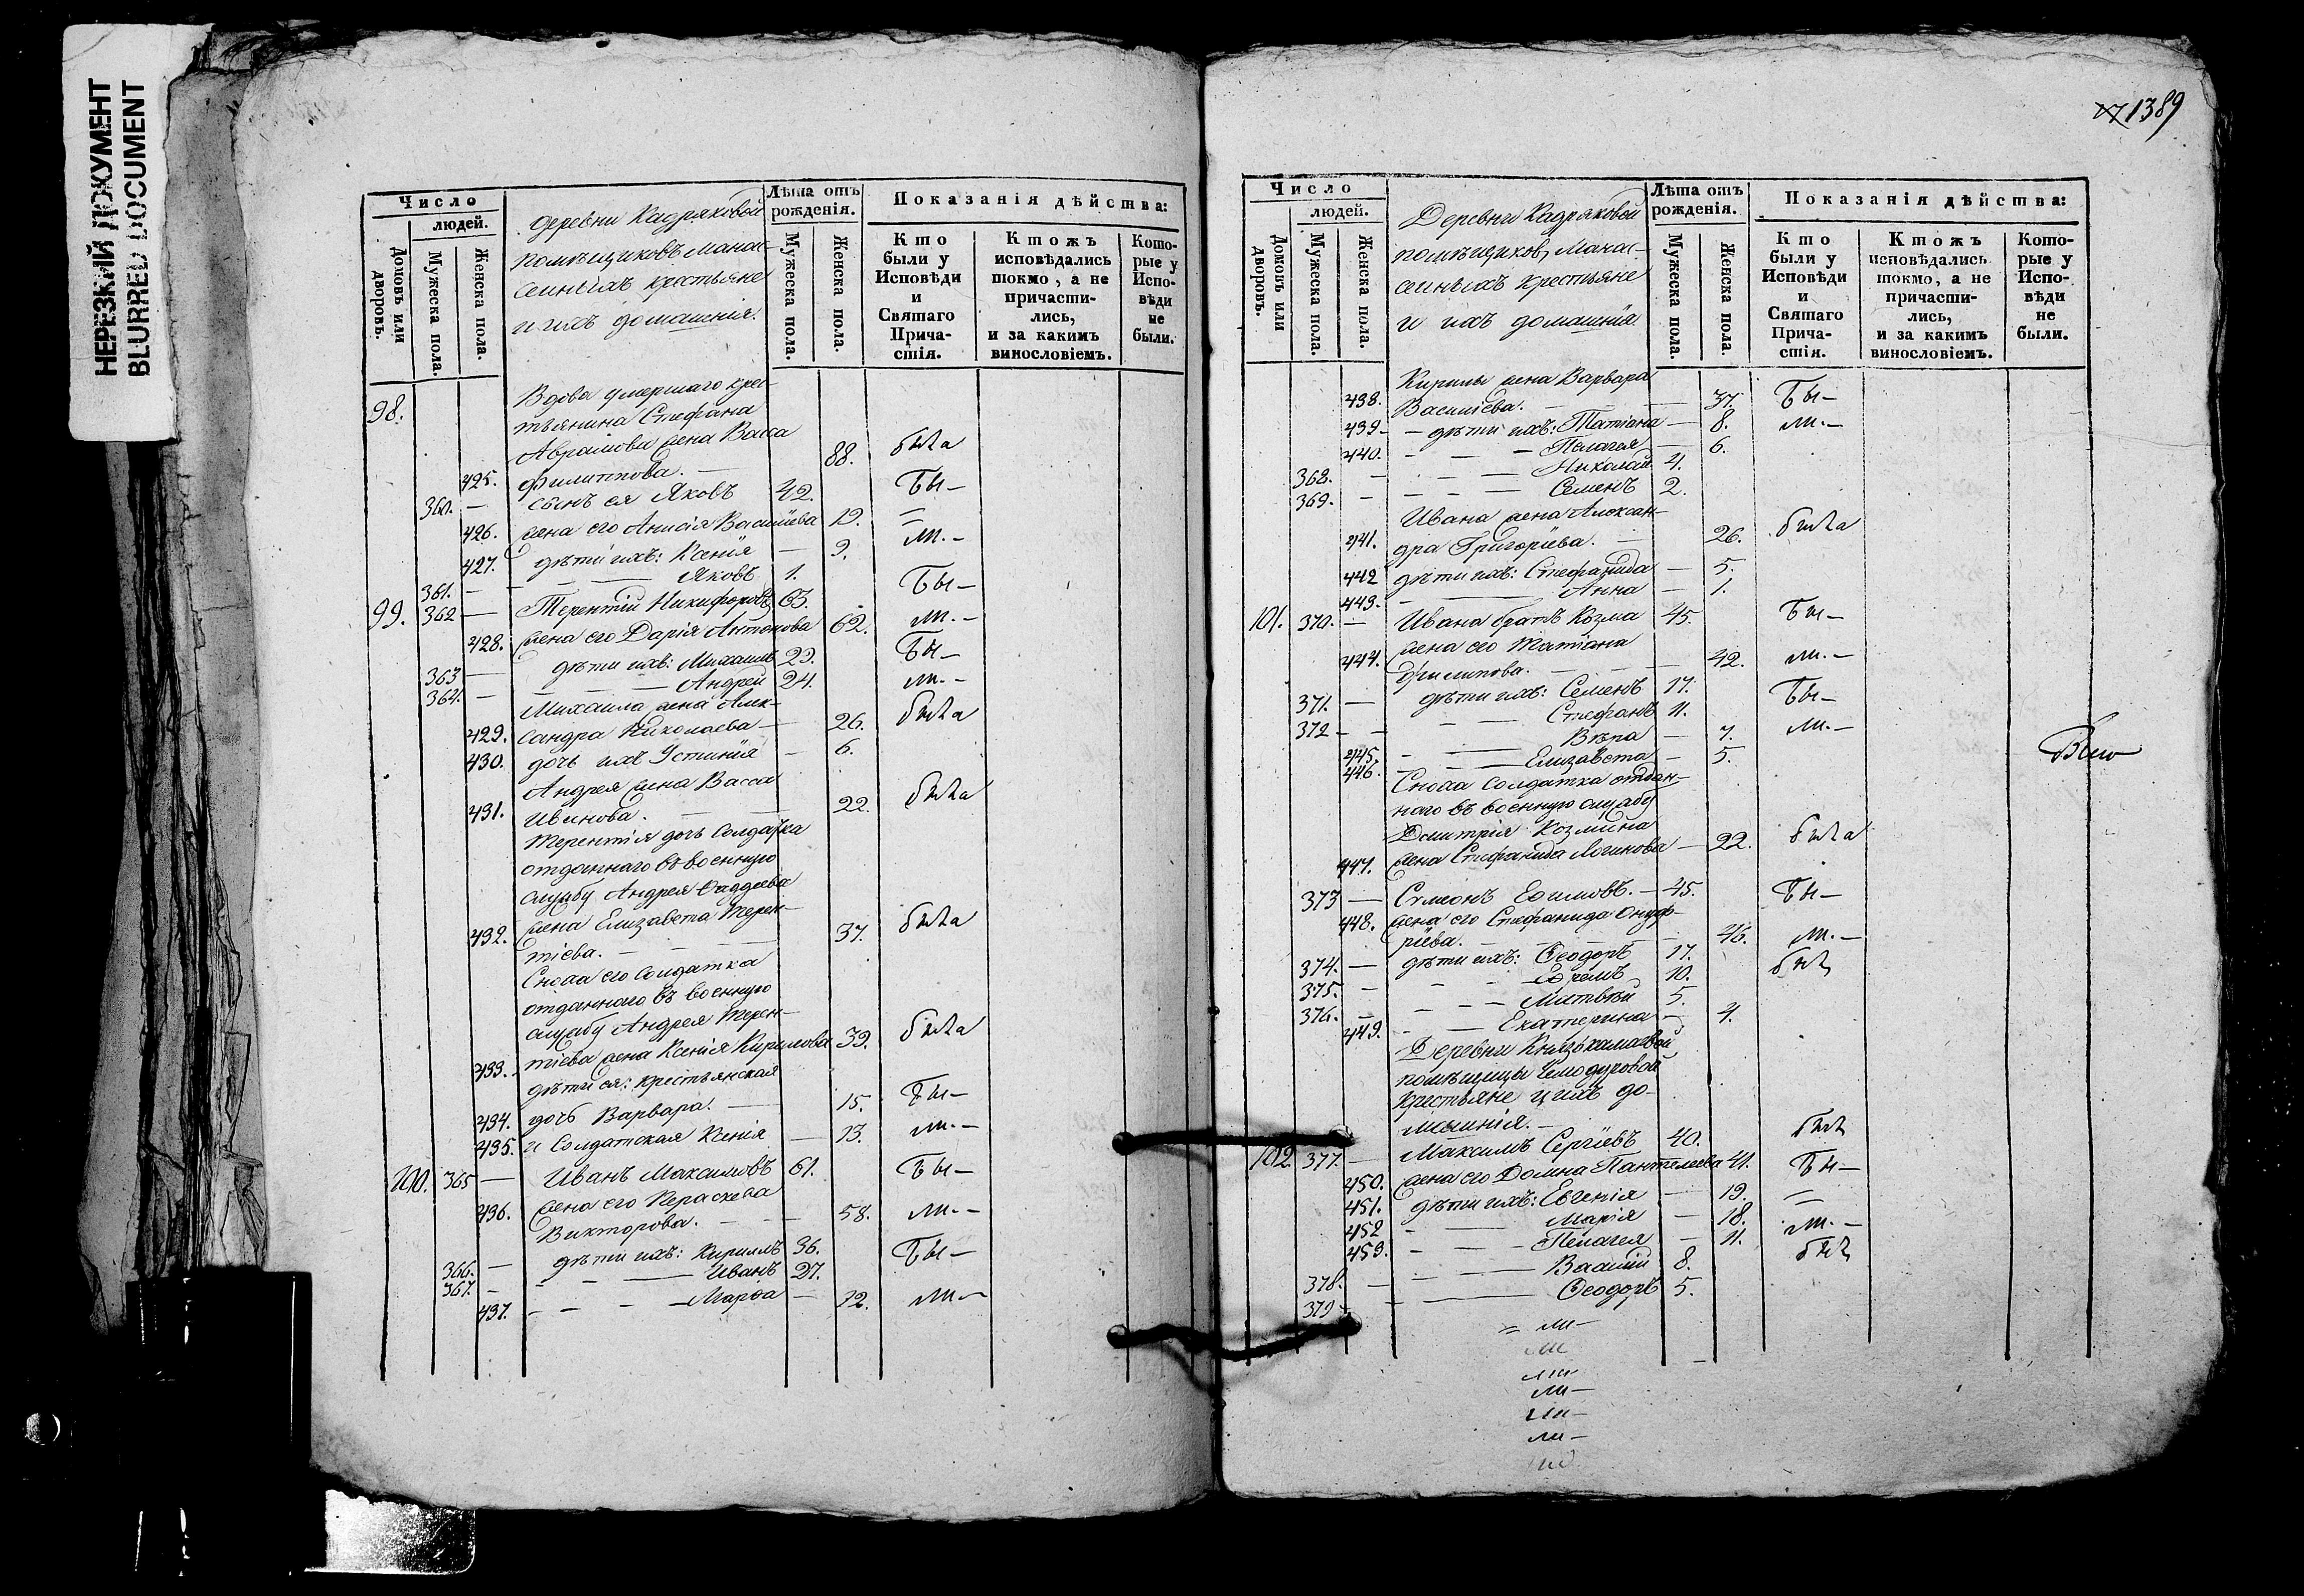 НЕРЕЗКИЙ ДОКУМЕНТ
BLURRED DOCUMENT
Число
людей.
Домовъ или дворовъ.
Мужеска пола.
Женска пола.
деревни Кадряковой
помѣщиковъ Манас-
сеиныхъ крестьяне
и ихъ домашнія.
Лѣта отъ рожденія.
Мужеска пола.
Женска пола.
Показанія дѣйства:
Кто были у Исповѣди и Святаго Прича- стія.
Ктожъ исповѣдались токмо, а не причасти- лись, и за какимъ винословіемъ.
Кото- рые у Испо- вѣди не были.
98. Вдова умершаго крес-
тьянина Стефана
Абрамова жена Васса
425. Филиппова. — 88. была
360. — сынъ ея Яковъ 42. Бы—
426. жена его Анисія Васильева 19. =
427. дѣти ихъ: Ксенія — 9. ли. -
361. — — — Яковъ 1.
99. 362 — Терентій Никифоровъ 63. Бы—
428. жена его Дарія Антонова 62. ли. -
363 — дѣти ихъ: Михаилъ 29. Бы—
364. — — — Андрей 24. ли. -
Михаила жена Алек-
429. сандра Николаева — 26. была
430. дочь ихъ Устинія — 6.
Андрея жена Васса
431. Иванова. — — 22. была
Терентія дочь Солдатка
отданнаго въ военную
службу Андрея Фаддеева
432. жена Елизавета Терен-
тіева. — — 37. была
Сноха его солдатка
отданнаго въ военную
службу Андрея Терен-
433. тіева жена Ксенія Кирилова 39. была
дѣти ея: крестьянская
434. дочь Варвара. — 15. Бы—
435. и Солдатская Ксенія — 13. ли. —
100. 365 — Иванъ Максимовъ 61. Бы—
436. жена его Пераскева
Викторова. — — 58. ли. -
366. — дѣти ихъ: Кириллъ 36. Бы—
367. — — — Иванъ 27.
437. — — — Марфа — 12. ли. —
1389
Число
людей.
Домовъ или дворовъ.
Мужеска пола.
Женска пола.
Деревни Кадряковой
помѣщиковъ Манас-
сеиныхъ крестьяне
и ихъ домашнія.
Лѣта отъ рожденія.
Мужеска пола.
Женска пола.
Показанія дѣйства:
Кто были у Исповѣди и Святаго Прича- стія.
Ктожъ исповѣдались токмо, а не причасти- лись, и за какимъ винословіемъ.
Кото- рые у Испо- вѣди не были.
Кирилы жена Варвара
438. Василіева. — — 37. Бы—
439 — дѣти ихъ: Татіана — 8. ли. —
440. — — — Пелагея — 6.
368. — — — Николай 4.
369. — — — Семенъ 2.
Ивана жена Алексан-
441. дра Григоріева. — 26. была
442 дѣти ихъ: Стефанида — 5.
443. — — Анна — 1.
101. 370. — Ивана братъ Козма 45. Бы—
444. жена его Татіана
Филипова. — — 42. ли. —
371. — дѣти ихъ: Семенъ 17. Бы—
372 — — — Стефанъ 11.
445. — — Вѣра — 7. ли. —
446. — — Елизавета — 5.
Сноха Солдатка отдан-
наго въ военную службу
Дмитрія Козмина
447. жена Стефанида Логинова — 22. была
373 — Сѵмеонъ Ефимовъ. — 45. Бы—
448. жена его Стефанида Онуф-
ріева. — — 46. ли. —
374. — дѣти ихъ: Ѳеодоръ 17. былъ
375. — — — Ефремъ 10.
376. — — — Матвѣй 5.
449. — — Екатерина — 4.
Деревни
помѣщицы
крестьяне и ихъ до-
машнія. —
102. 377. — Максимъ Сергѣевъ 40. былъ
450. жена его Домна Пантелеева 41. Бы—
451. дѣти ихъ: Евгенія — 19. =
452 — — Марія — 18. ли. —
453. — — — Пелагея — 11.
378. — — — Василій 8. былъ
379 — — Ѳеодоръ 5.
= ли—
ли
ли
ли—
ли—
ли—